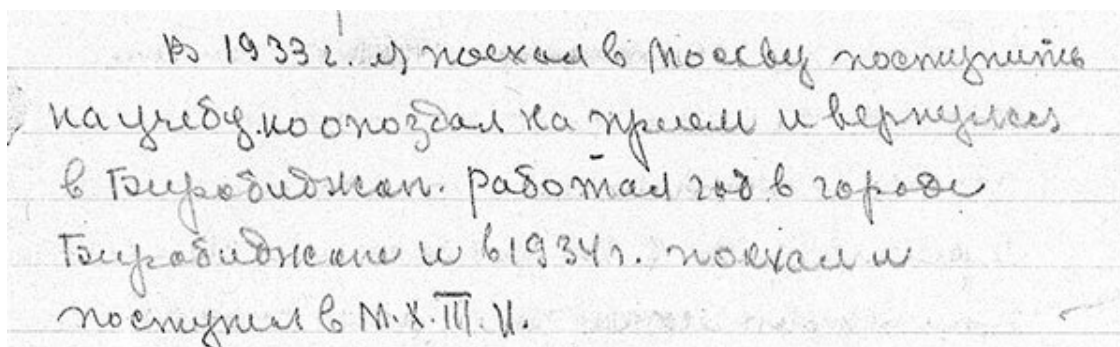 В 1933 г. я поехал в Москву поступить
на учебу. но опоздал на прием и вернулся
в Биробиджан. работал год в городе
Биробиджане и в 1934 г. поехал и
поступил в М.Х.Т.И.